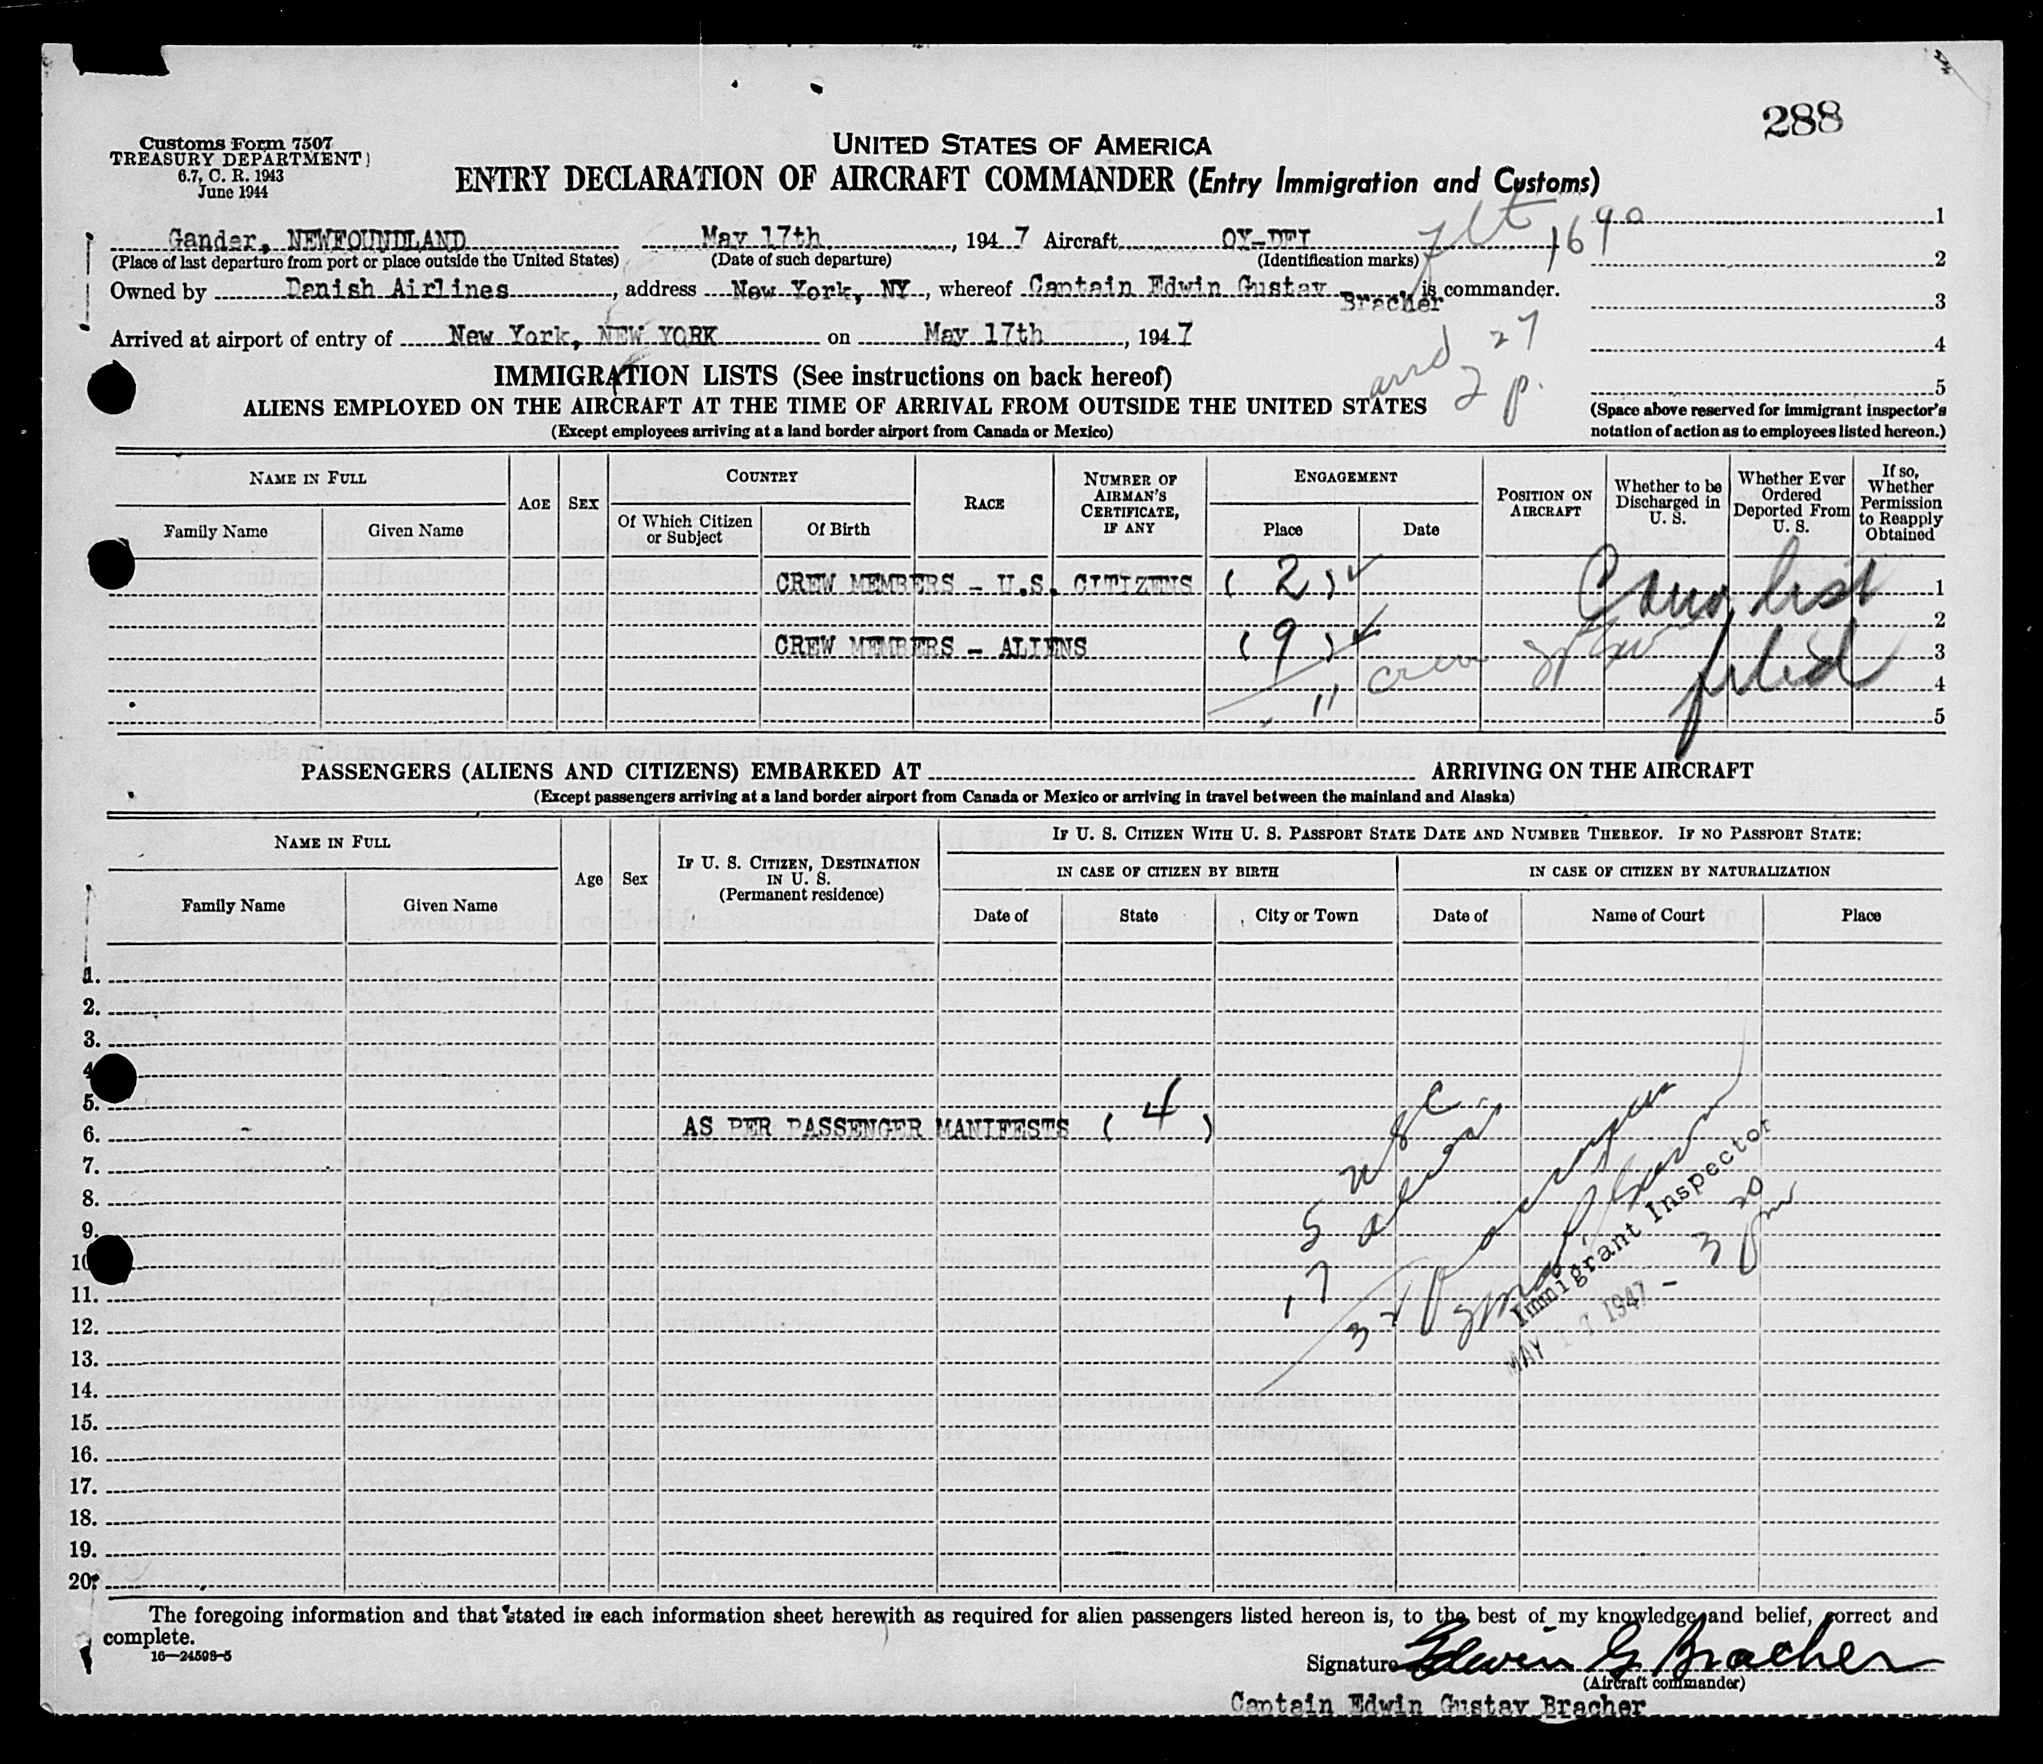 288
Customs Form 7507
TREASURY DEPARTMENT
6.7, C. R. 1943
June 1944
UNITED STATES OF AMERICA
ENTRY DECLARATION OF AIRCRAFT COMMANDER (Entry Immigration and Customs)
Gander, NEWFOUNDLAND May 17th, 1947 Aircraft OY-DFI
flt 1690
(Place of last departure from port or place outside the United States) (Date of such departure) (Identification marks)
Owned by Danish Airlines, address New York, NY, whereof Captain Edwin Gustav Bracher is commander.
Arrived at airport of entry of New York, NEW YORK on May 17th, 1947
1
2
3
4
5
(Space above reserved for immigrant inspector's
notation of action as to employees listed hereon.)
arrd 2 27 p.
IMMIGRATION LISTS (See instructions on back hereof)
ALIENS EMPLOYED ON THE AIRCRAFT AT THE TIME OF ARRIVAL FROM OUTSIDE THE UNITED STATES
(Except employees arriving at a land border airport from Canada or Mexico)
NAME IN FULL
Family Name
Given Name
AGE
SEX
COUNTRY
Of Which Citizen or Subject
Of Birth
RACE
NUMBER OF AIRMAN'S CERTIFICATE, IF ANY
ENGAGEMENT
Place
Date
POSITION ON AIRCRAFT
Whether to be Discharged in U. S.
Whether Ever Ordered Deported From U. S.
If so, Whether Permission to Reapply Obtained
CREW MEMBERS - U.S. CITIZENS ( 2 ) 1
2
CREW MEMBERS - ALIENS ( 9 ) 3
11 crew 4
5
list
filed
PASSENGERS (ALIENS AND CITIZENS) EMBARKED AT ARRIVING ON THE AIRCRAFT
(Except passengers arriving at a land border airport from Canada or Mexico or arriving in travel between the mainland and Alaska)
NAME IN FULL
Family Name
Given Name
Age
Sex
IF U. S. CITIZEN, DESTINATION IN U. S.
(Permanent residence)
IF U. S. CITIZEN WITH U. S. PASSPORT STATE DATE AND NUMBER THEREOF. IF NO PASSPORT STATE:
IN CASE OF CITIZEN BY BIRTH
Date of
State
City or Town
IN CASE OF CITIZEN BY NATURALIZATION
Date of
Name of Court
Place
1.
2.
3.
4
5.
6. AS PER PASSENGER MANIFESTS ( 4 )
7.
8.
9.
10
11.
12.
13.
14.
15.
16.
17.
18.
19.
20.
5 usc
aliens
Immigrant Inspector
MAY 17 1947 - 3 20 pm
The foregoing information and that stated in each information sheet herewith as required for alien passengers listed hereon is, to the best of my knowledge and belief, correct and
complete.
16—24598-5
Signature Edwin G Bracher
(Aircraft commander)
Captain Edwin Gustav Bracher